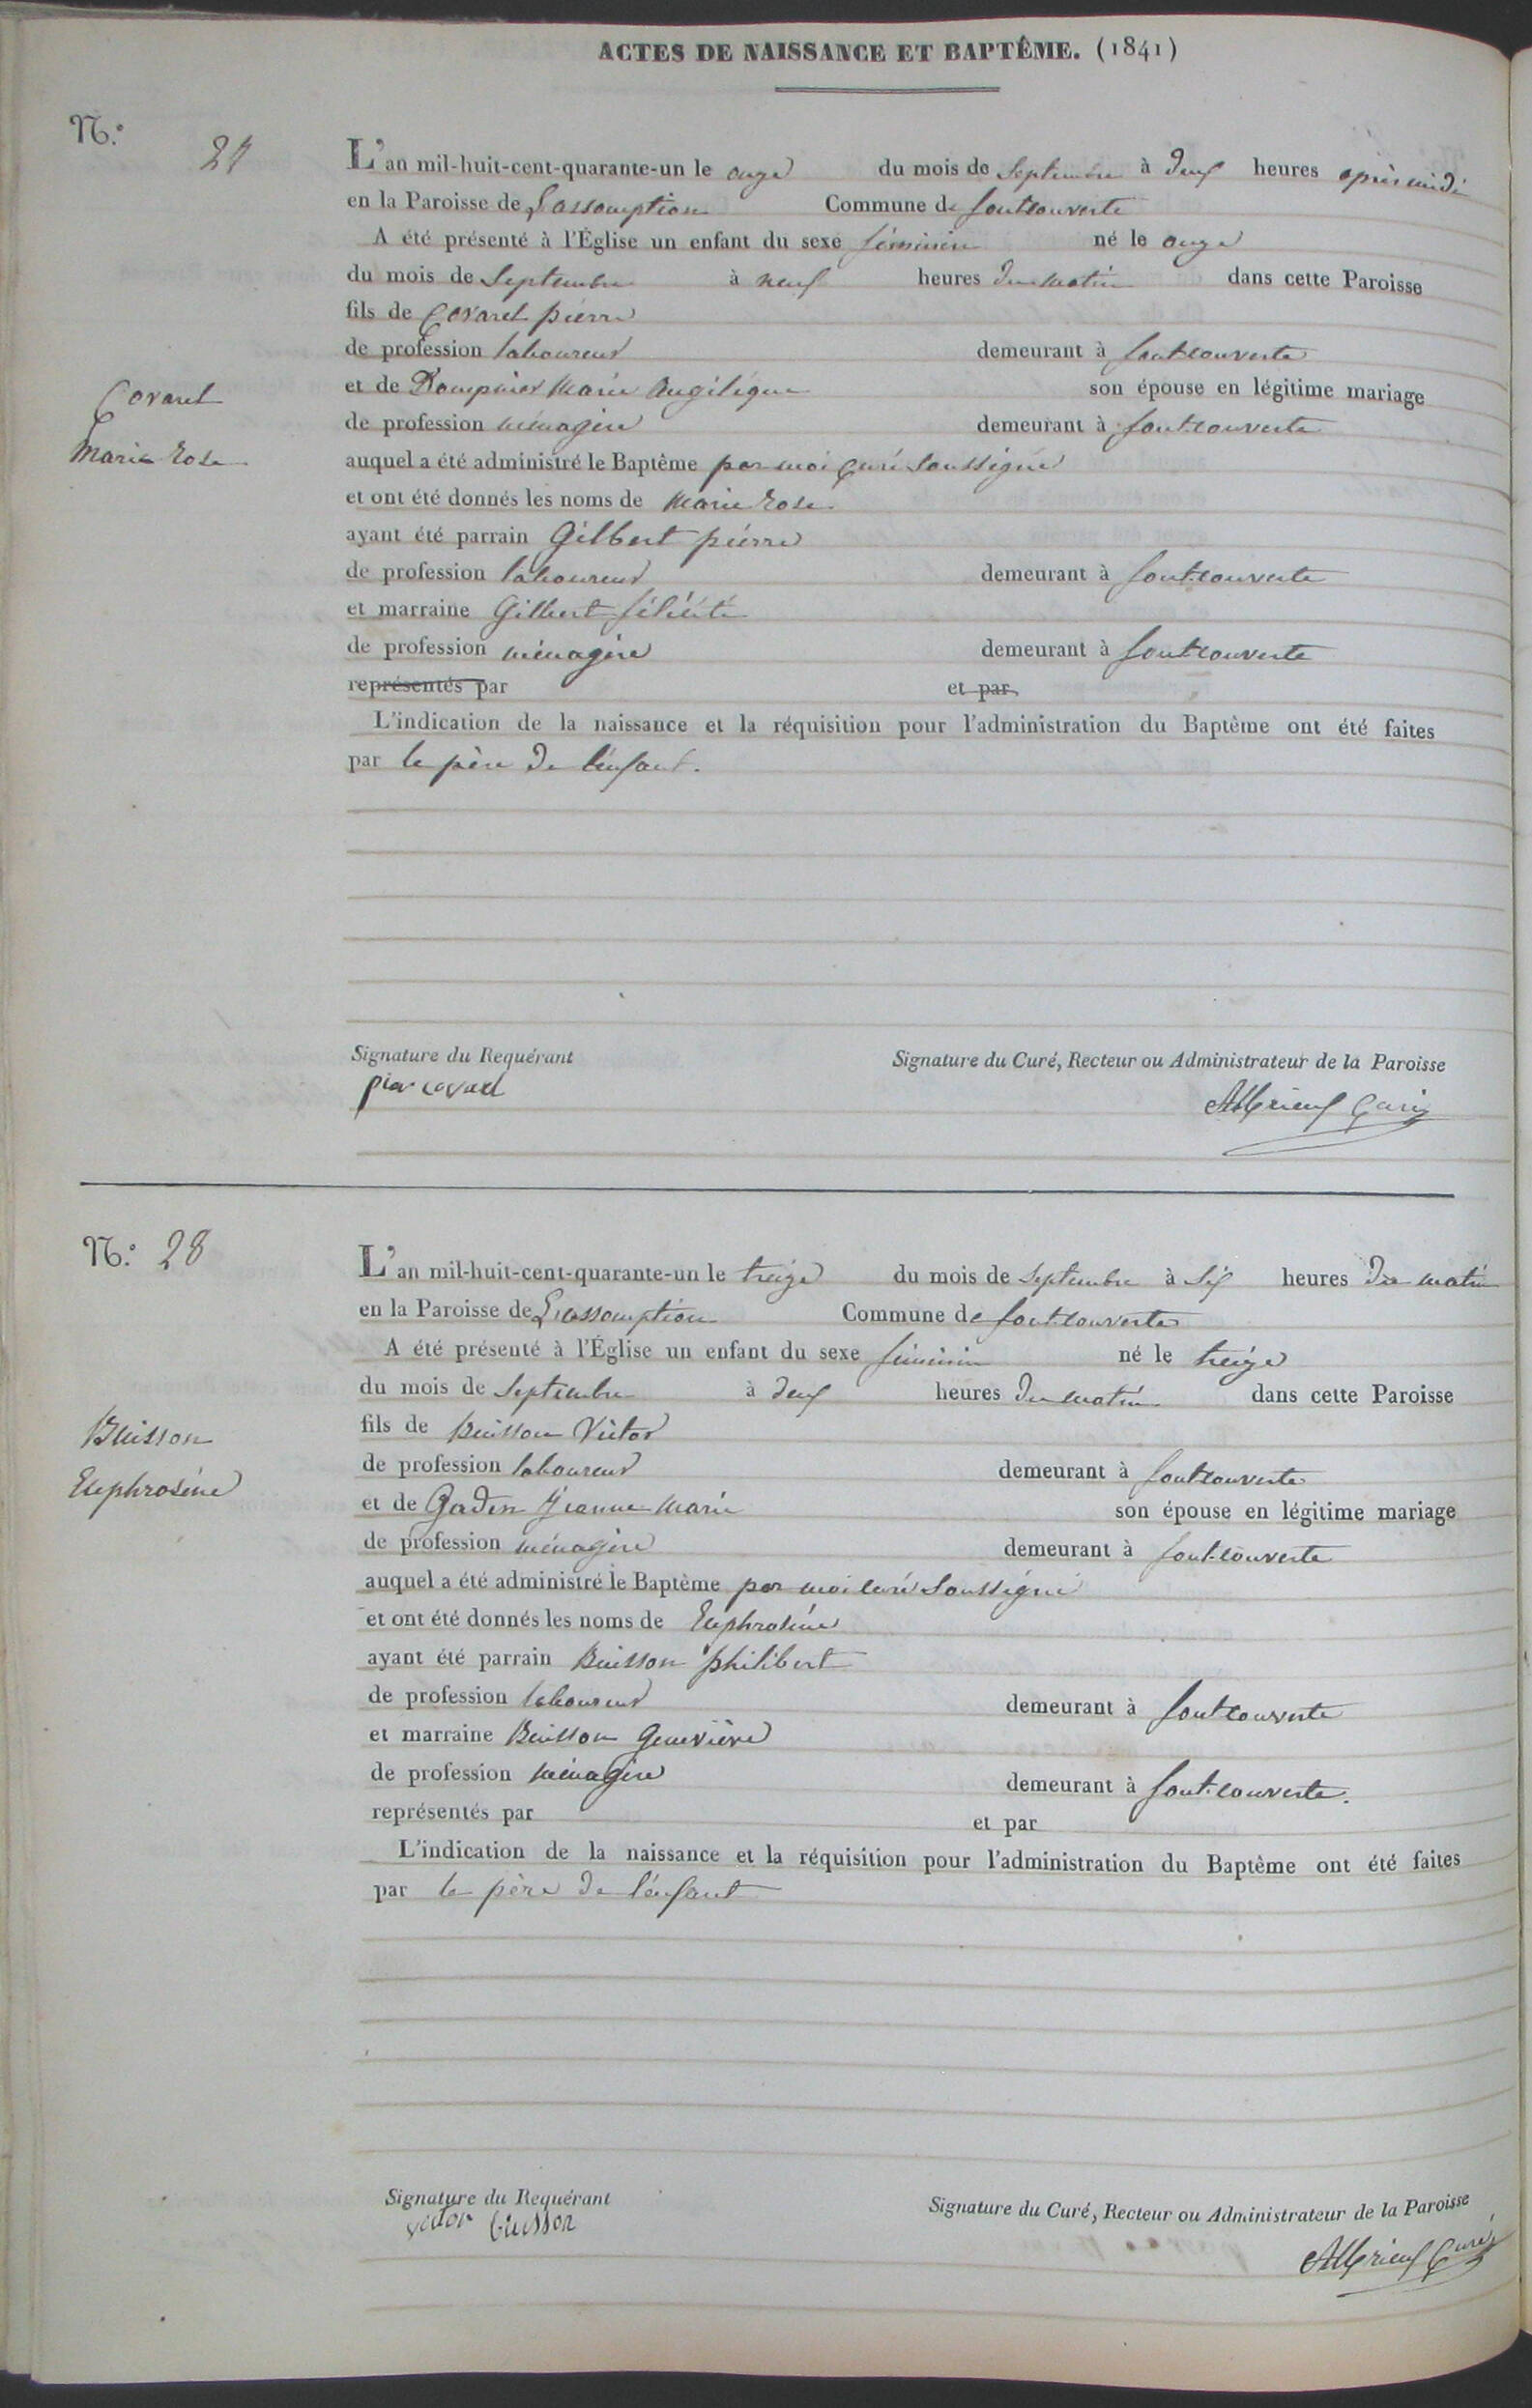 ACTES DE NAISSANCE ET BAPTÊME. (1841)
N.° 27
L'an mil-huit-cent-quarante-un le onze du mois de Septembre à deux heures après midi
en la Paroisse de L'assomption Commune de fontcouverte
A été présenté à l'Église un enfant du sexe féminin né le onze
du mois de Septembre à neuf heures du matin dans cette Paroisse
fils de Covarel pierre
de profession laboureur demeurant à fontcouverte
Covarel
et de Dompnier Marie Angélique son épouse en légitime mariage
de profession ménagère demeurant à fontcouverte
Marie Rose
auquel a été administré le Baptême par moi curé soussigné
et ont été donnés les noms de Marie Rose
ayant été parrain Gilbert pierre
de profession laboureur demeurant à fontcouverte
et marraine Gilbert félicité
de profession ménagère demeurant à fontcouverte
représentés par et par
L'indication de la naissance et la réquisition pour l'administration du Baptême ont été faites
par le père de l'enfant.
Signature du Requérant Signature du Curé, Recteur ou Administrateur de la Paroisse
pier covarel Curé
N.° 28
L'an mil-huit-cent-quarante-un le treize du mois de Septembre à six heures du matin
en la Paroisse de L'assomption Commune de fontcouverte
A été présenté à l'Église un enfant du sexe féminin né le treize
du mois de Septembre à deux heures du matin dans cette Paroisse
fils de Buisson Victor
Buisson
de profession laboureur demeurant à fontcouverte
Euphrosine
et de Gadin Jeanne Marie son épouse en légitime mariage
de profession ménagère demeurant à font-couverte
auquel a été administré le Baptême par moi curé soussigné
et ont été donnés les noms de Euphrosine
ayant été parrain Buisson philibert
de profession laboureur demeurant à fontcouverte
et marraine Buisson Geneviève
de profession ménagère demeurant à font-couverte.
représentés par et par
L'indication de la naissance et la réquisition pour l'administration du Baptême ont été faites
par le père de l'enfant
Signature du Requérant Signature du Curé, Recteur ou Administrateur de la Paroisse
victor buisson Curé